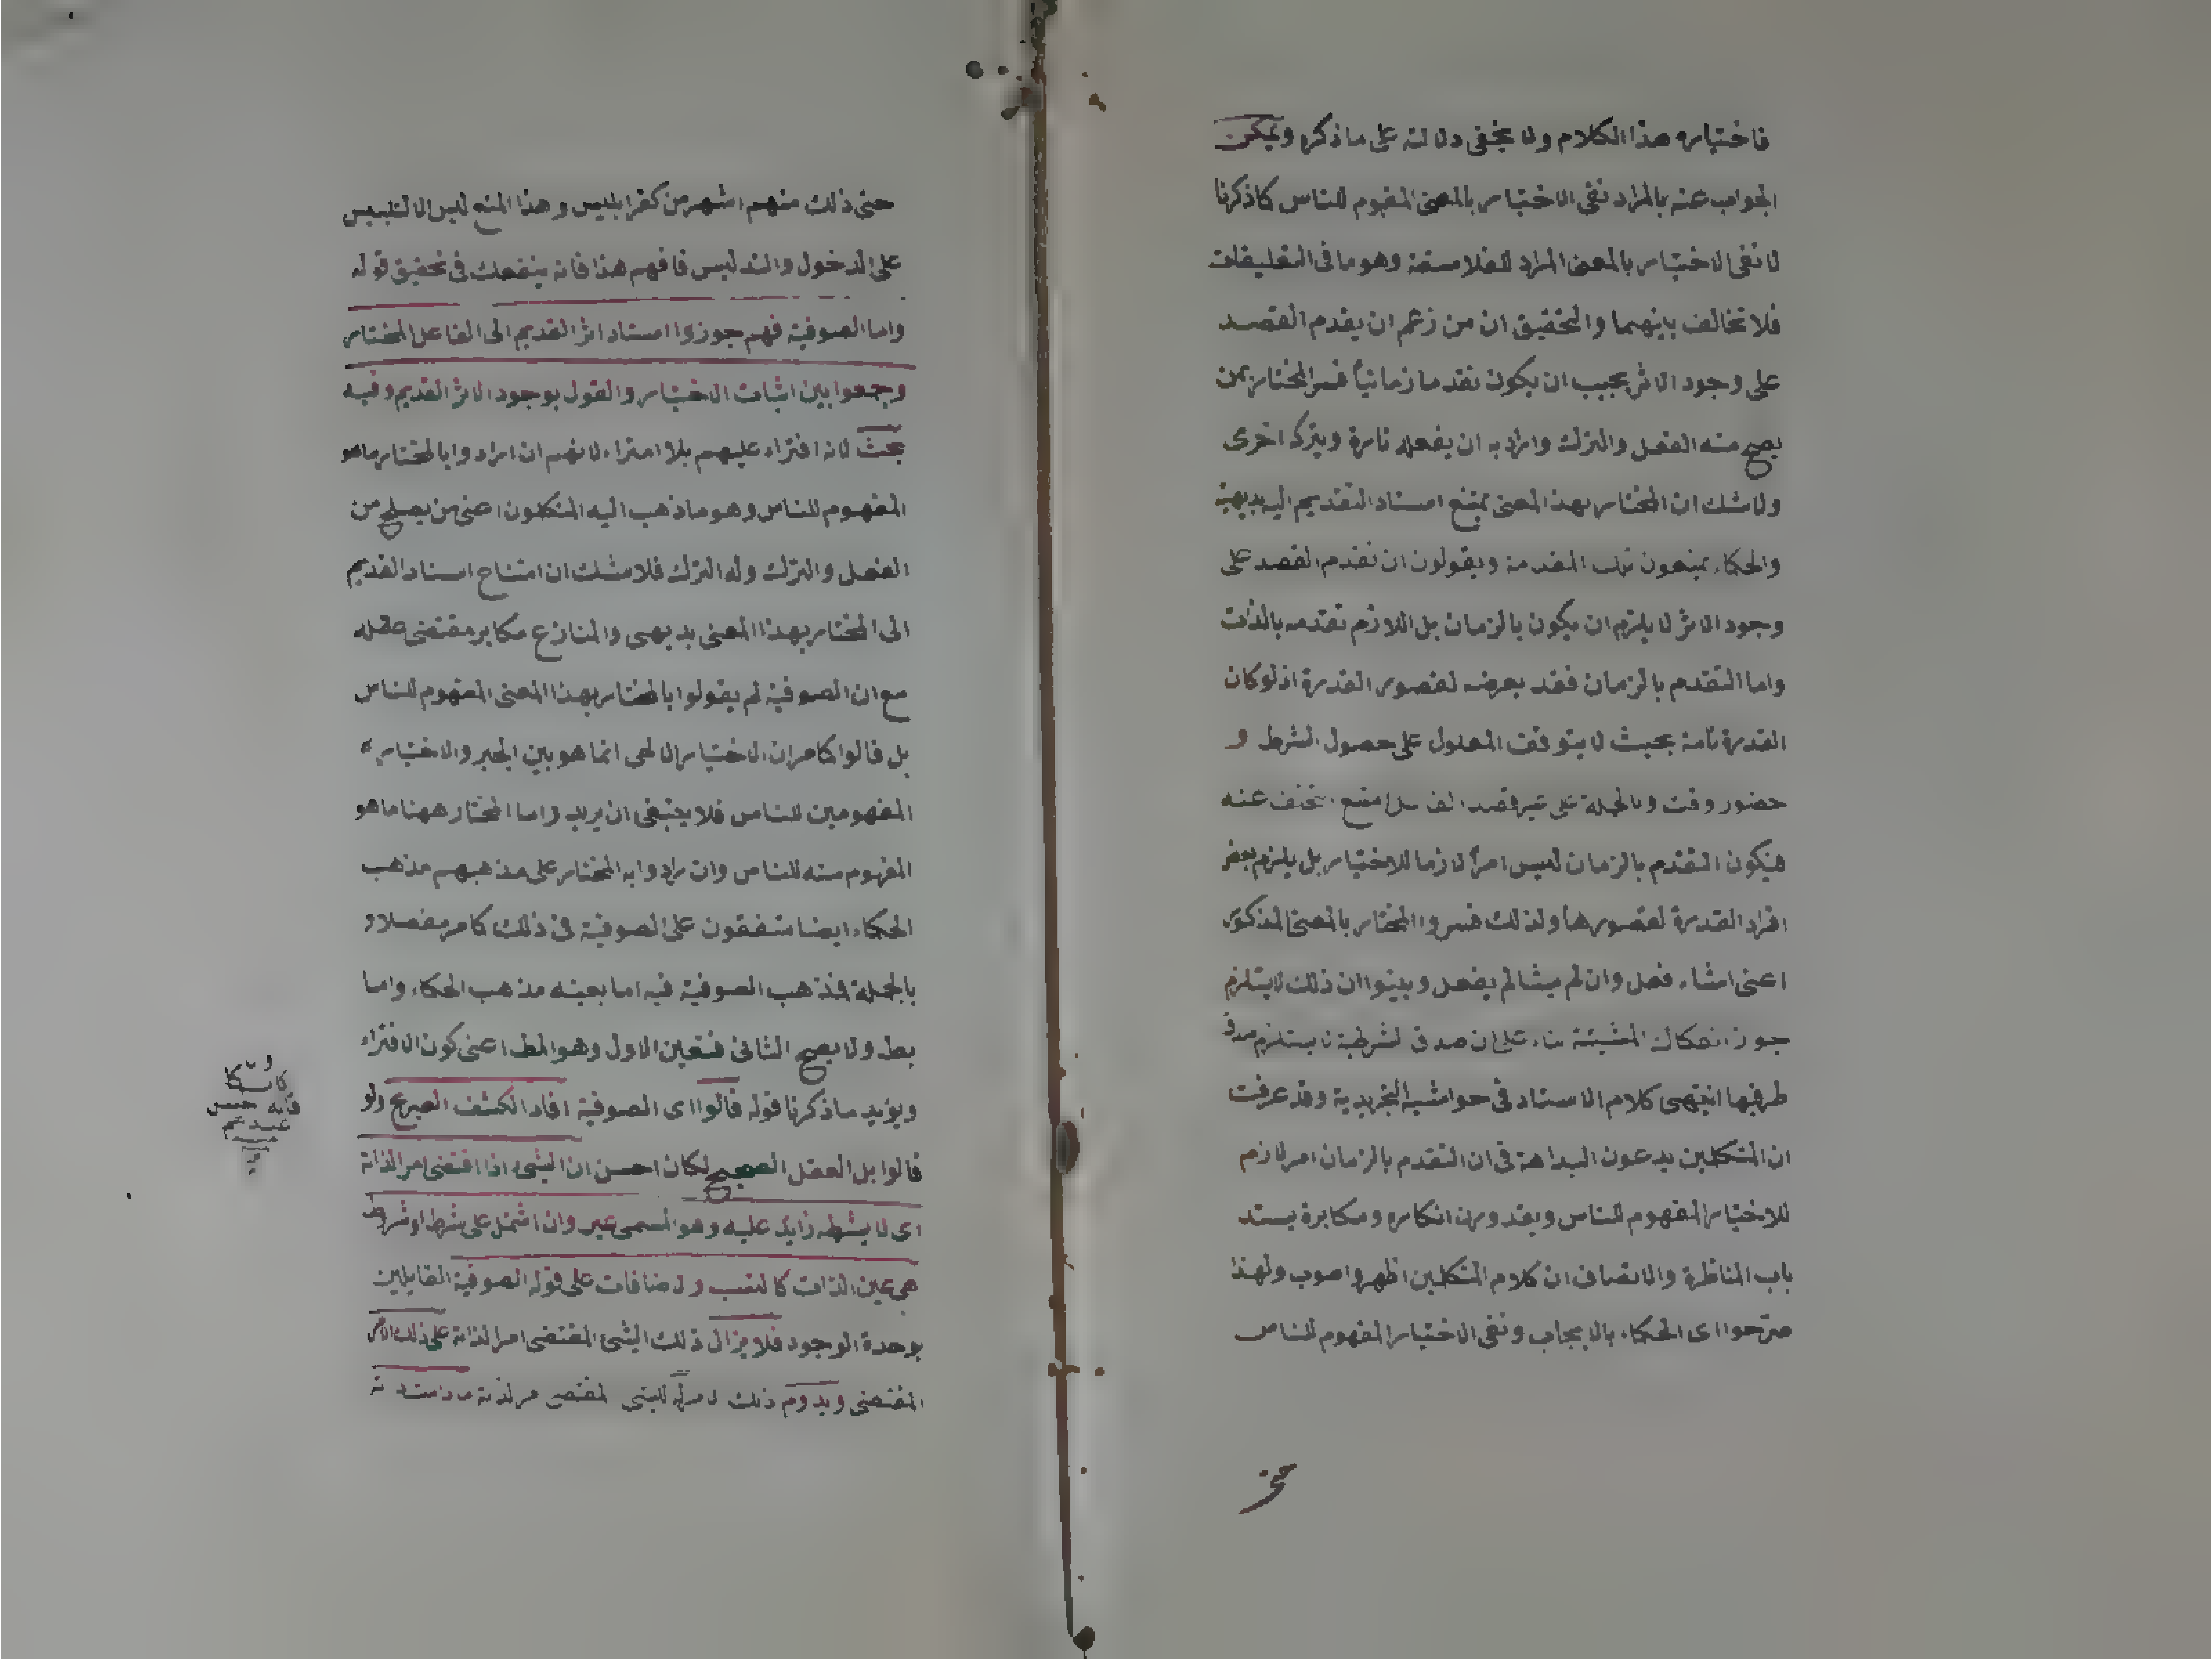 فاختياره هذا الكلام ولا يخفى دلالته على ما ذكره ويمكن
الجواب عنه بالمراد نفى الاختيار بالمعنى المفهوم للناس كما ذكرنا
لا نفى الاختيار بالمعنى المراد للفلاسفة وهو ما فى التعليقات
فلا تخالف بينهما والتحقيق ان من زعم ان يقدم القصد
على وجود الاثر يجب ان يكون تقدما زمانيا فسر المختار بمن
يصح منه الفعل والترك واراد به ان يفعله تارة ويتركه اخرى
ولا شك ان المختار بهذا المعنى يمتنع استناد القديم اليه بديهة
والحكماء يمنعون تلك المقدمة ويقولون ان تقدم القصد على
وجود الاثر لا يلزم ان يكون بالزمان بل اللازم تقدمه بالذات
واما التقدم بالزمان فقد يعرض لقصور القدرة اذ لو كان
القدرة تامة بحيث لا يتوقف المعلول على حصول الشرط و
حضور وقت وبالجملة على غير قصد الفاعل امتنع التخلف عنه
فيكون التقدم بالزمان ليس امرا لازما للاختيار بل يلزم بعض
افراد القدرة لقصورها ولذلك فسروا المختار بالمعنى المذكور
اعنى انشاء فعل وان لم يشا لم يفعل وبينوا ان ذلك لا يستلزم
جواز انفكاك المشيئة بناء على ان صدق الشرطية لا يستلزم صدق
طرفيها انتهى كلام الاستاد فى حواشيه التجريدية وقد عرفت
ان المتكلمين يدعون البداهة فى ان التقدم بالزمان امر لازم
للاختيار المفهوم للناس ويعدون انكاره مكابرة يستد
باب المناظرة والانصاف ان كلام المتكلمين اظهر واصوب ولهذا
صرحوا اى الحكماء بالايجاب ونفى الاختيار المفهوم للناس
حتى
حتى ذلك منهم اشهر من كفر ابليس وهذا المنع ليس الا لتلبيس
على الدخول والتدليس فافهم هذا فانه ينفعك فى تحقيق قوله
واما الصوفية فهم جوزوا استناد اثر القديم الى الفاعل المختار
وجمعوا بين اثبات الاختيار والقول بوجود الاثر القديم وفيه
بحث لانه افتراء عليهم بلا امتراء لانهم ان ارادوا بالمختار ما هو
المفهوم للناس وهو ما ذهب اليه المتكلمون اعنى من يصلح من
الفعل والترك وله الترك فلا شك ان امتناع استناد القديم
الى المختار بهذا المعنى بديهى والمنازع مكابر مقتضى عقله
مع ان الصوفية لم يقولوا بالمختار بهذا المعنى المفهوم للناس
بل قالوا كما مر ان الاختيار الالهى انما هو بين الجبر والاختيار
المفهومين للناس فلا ينبغى ان يريدوا بالمختار ههنا ما هو
المفهوم منه للناس وان ارادوا به المختار على مذهبهم مذهب
الحكماء ايضا متفقون على الصوفية فى ذلك كما مر مفصلا و
بالجملة فذهب الصوفية فيه اما بعينه مذهب الحكماء واما
بط ولا يصح الثانى فتعين الاول وهو المط اعنى كون الافتراء
ويؤيد ما ذكرنا قوله قالوا اى الصوفية افاد الكشف الصريح ولو
قالوا بل العقل الصحيح لكان احسن ان الشئ اذا اقتضى امرا لذاته
اى لا يشرط زايد عليه وهو المسمى غير وان اشتمل على شرط او شرط
هى عين الذات كالنسب والاضافات على قوله الصوفية القايلين
بوحدة الوجود فلا يزال ذلك الشئ المقتضى امرا لذاته على ذلك الامر
المقتضى ويدوم ذلك الامر للشئ المقتضى امر لذاته ما دامت ذاته